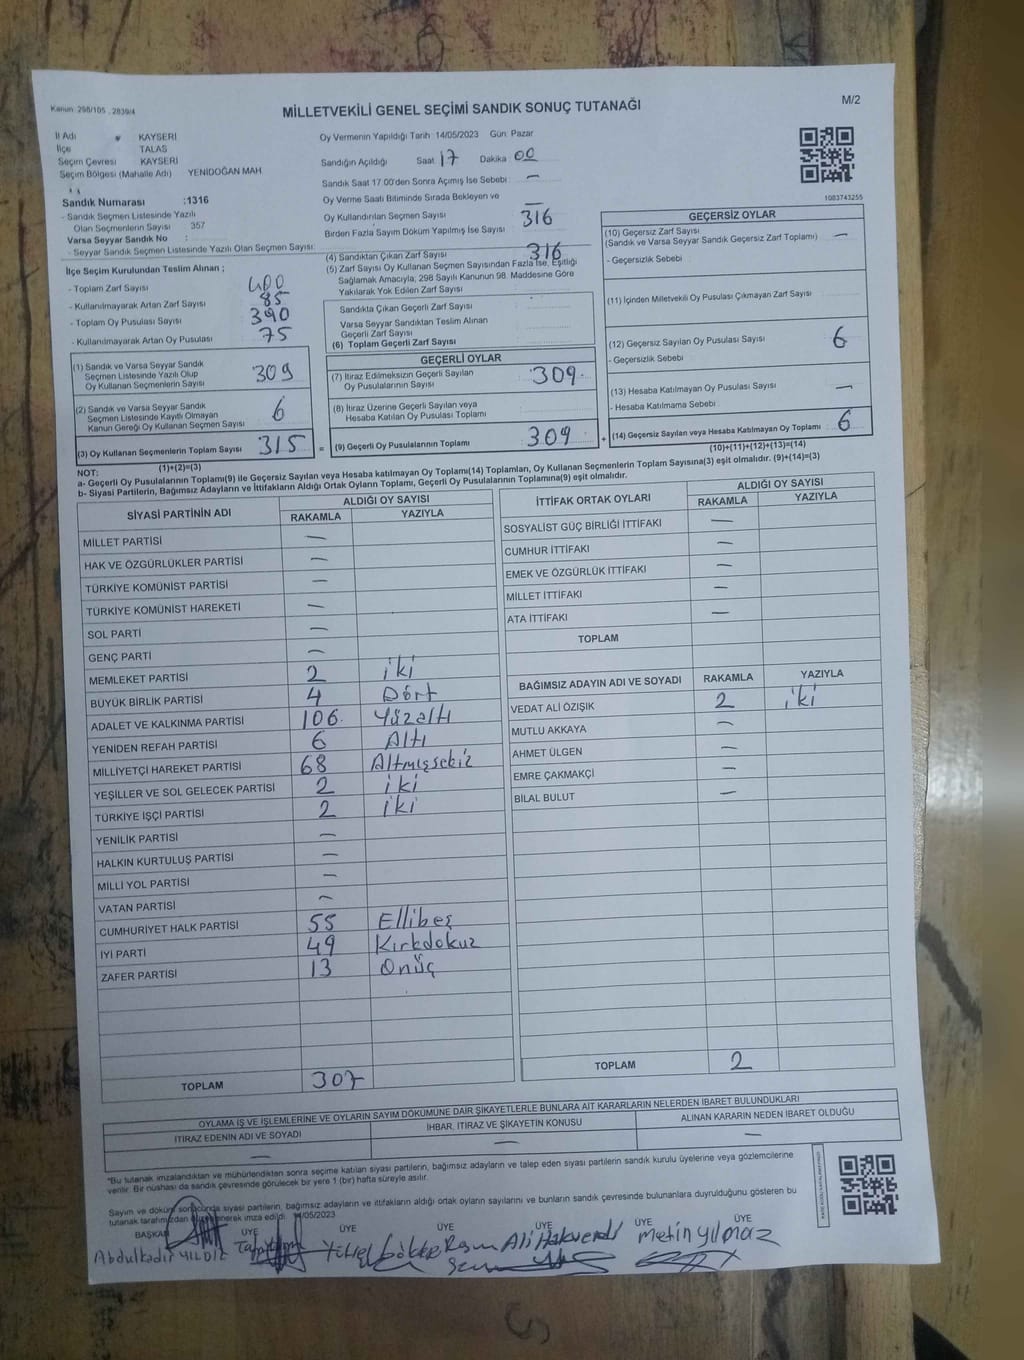 Kanun: 298/105 , 2839/4
MİLLETVEKİLİ GENEL SEÇİMİ SANDIK SONUÇ TUTANAĞI
M/2
İl Adı KAYSERİ
İlçe TALAS
Seçim Çevresi KAYSERİ
Seçim Bölgesi (Mahalle Adı) YENİDOĞAN MAH
Oy Vermenin Yapıldığı Tarih: 14/05/2023 Gün: Pazar
Sandığın Açıldığı Saat 17 Dakika 00
Sandık Saat 17:00'den Sonra Açımış İse Sebebi: —
Oy Verme Saati Bitiminde Sırada Bekleyen ve
Oy Kullandırılan Seçmen Sayısı —
Birden Fazla Sayım Döküm Yapılmış İse Sayısı 316
1083743255
Sandık Numarası :1316
- Sandık Seçmen Listesinde Yazılı
Olan Seçmenlerin Sayısı 357
Varsa Seyyar Sandık No :
- Seyyar Sandık Seçmen Listesinde Yazılı Olan Seçmen Sayısı:
İlçe Seçim Kurulundan Teslim Alınan ;
- Toplam Zarf Sayısı 400
- Kullanılmayarak Artan Zarf Sayısı 85
- Toplam Oy Pusulası Sayısı 390
- Kullanılmayarak Artan Oy Pusulası 75
(1) Sandık ve Varsa Seyyar Sandık
Seçmen Listesinde Yazılı Olup
Oy Kullanan Seçmenlerin Sayısı 309
(2) Sandık ve Varsa Seyyar Sandık
Seçmen Listesinde Kayıtlı Olmayan
Kanun Gereği Oy Kullanan Seçmen Sayısı 6
(3) Oy Kullanan Seçmenlerin Toplam Sayısı 315 =
(4) Sandıktan Çıkan Zarf Sayısı 316
(5) Zarf Sayısı Oy Kullanan Seçmen Sayısından Fazla İse, Eşitliği
Sağlamak Amacıyla; 298 Sayılı Kanunun 98. Maddesine Göre
Yakılarak Yok Edilen Zarf Sayısı
Sandıkta Çıkan Geçerli Zarf Sayısı
Varsa Seyyar Sandıktan Teslim Alınan
Geçerli Zarf Sayısı
(6) Toplam Geçerli Zarf Sayısı
GEÇERLİ OYLAR
(7) İtiraz Edilmeksizin Geçerli Sayılan
Oy Pusulalarının Sayısı 309
(8) İtiraz Üzerine Geçerli Sayılan veya
Hesaba Katılan Oy Pusulası Toplamı
(9) Geçerli Oy Pusulalarının Toplamı 309 +
GEÇERSİZ OYLAR
(10) Geçersiz Zarf Sayısı
(Sandık ve Varsa Seyyar Sandık Geçersiz Zarf Toplamı) —
- Geçersizlik Sebebi :
(11) İçinden Milletvekili Oy Pusulası Çıkmayan Zarf Sayısı
(12) Geçersiz Sayılan Oy Pusulası Sayısı 6
- Geçersizlik Sebebi :
(13) Hesaba Katılmayan Oy Pusulası Sayısı —
- Hesaba Katılmama Sebebi :
(14) Geçersiz Sayılan veya Hesaba Katılmayan Oy Toplamı 6
NOT: (1)+(2)=(3) (10)+(11)+(12)+(13)=(14)
a- Geçerli Oy Pusulalarının Toplamı(9) ile Geçersiz Sayılan veya Hesaba katılmayan Oy Toplamı(14) Toplamları, Oy Kullanan Seçmenlerin Toplam Sayısına(3) eşit olmalıdır. (9)+(14)=(3)
b- Siyasi Partilerin, Bağımsız Adayların ve İttifakların Aldığı Ortak Oyların Toplamı, Geçerli Oy Pusulalarının Toplamına(9) eşit olmalıdır.
SİYASİ PARTİNİN ADI ALDIĞI OY SAYISI
RAKAMLA YAZIYLA
MİLLET PARTİSİ —
HAK VE ÖZGÜRLÜKLER PARTİSİ —
TÜRKİYE KOMÜNİST PARTİSİ —
TÜRKİYE KOMÜNİST HAREKETİ —
SOL PARTİ —
GENÇ PARTİ —
MEMLEKET PARTİSİ 2 iki
BÜYÜK BİRLİK PARTİSİ 4 Dört
ADALET VE KALKINMA PARTİSİ 106 Yüzaltı
YENİDEN REFAH PARTİSİ 6 Altı
MİLLİYETÇİ HAREKET PARTİSİ 68 Altmışsekiz
YEŞİLLER VE SOL GELECEK PARTİSİ 2 iki
TÜRKİYE İŞÇİ PARTİSİ 2 iki
YENİLİK PARTİSİ —
HALKIN KURTULUŞ PARTİSİ —
MİLLİ YOL PARTİSİ —
VATAN PARTİSİ —
CUMHURİYET HALK PARTİSİ 55 Ellibeş
İYİ PARTİ 49 Kırkdokuz
ZAFER PARTİSİ 13 Onüç
TOPLAM 307
İTTİFAK ORTAK OYLARI ALDIĞI OY SAYISI
RAKAMLA YAZIYLA
SOSYALİST GÜÇ BİRLİĞİ İTTİFAKI —
CUMHUR İTTİFAKI —
EMEK VE ÖZGÜRLÜK İTTİFAKI —
MİLLET İTTİFAKI —
ATA İTTİFAKI —
TOPLAM
BAĞIMSIZ ADAYIN ADI VE SOYADI RAKAMLA YAZIYLA
VEDAT ALİ ÖZIŞIK 2 iki
MUTLU AKKAYA —
AHMET ÜLGEN —
EMRE ÇAKMAKÇİ —
BİLAL BULUT —
TOPLAM 2
OYLAMA İŞ VE İŞLEMLERİNE VE OYLARIN SAYIM DÖKÜMÜNE DAİR ŞİKAYETLERLE BUNLARA AİT KARARLARIN NELERDEN İBARET BULUNDUKLARI
İTİRAZ EDENİN ADI VE SOYADI İHBAR, İTİRAZ VE ŞİKAYETİN KONUSU ALINAN KARARIN NEDEN İBARET OLDUĞU
— — —
"Bu tutanak imzalandıktan ve mühürlendikten sonra seçime katılan siyasi partilerin, bağımsız adayların ve talep eden siyasi partilerin sandık kurulu üyelerine veya gözlemcilerine
verilir. Bir nüshası da sandık çevresinde görülecek bir yere 1 (bir) hafta süreyle asılır.
Sayım ve döküm sonucunda siyasi partilerin, bağımsız adayların ve ittifakların aldığı ortak oyların sayılarını ve bunların sandık çevresinde bulunanlara duyrulduğunu gösteren bu
tutanak tarafımızdan imza edildi. 14/05/2023
BAŞKAN ÜYE ÜYE ÜYE ÜYE ÜYE ÜYE
Abdulkadir YILDIZ Yüksel Gökçe Ali Hakverdi Metin Yılmaz